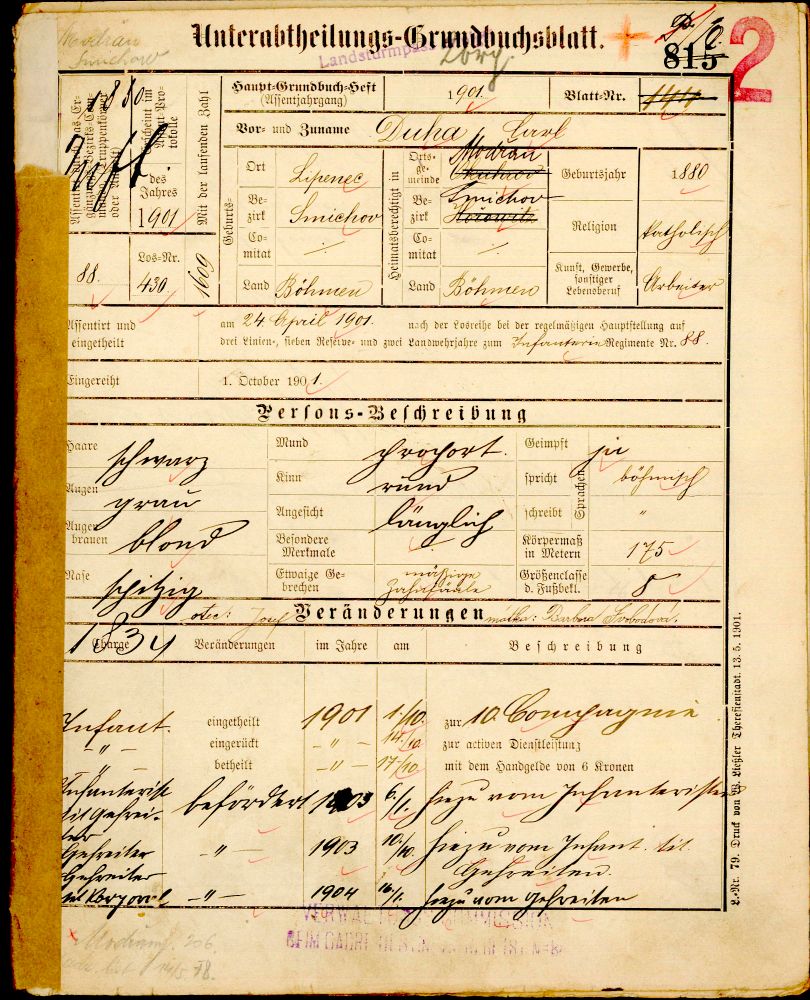 Modřan
Smichow
Unterabtheilungs-Grundbuchsblatt.
Landsturmpass
815
2
1880
Haupt-Grundbuch-Heft
(Assentjahrgang)
1901.
Blatt-Nr.
Vor- und Zuname Duha Carl
des
Jahres
1901
Mit der laufenden Zahl
1609
Los-Nr.
88. 430
Geburts-
Ort Lipenec
Be-
zirk Smichov
Co-
mitat ·/·
Land Böhmen
Heimatsberechtigt in
Orts-
ge-
meinde Modřan
Be-
zirk Smichov
Co-
mitat ·/·
Land Böhmen
Geburtsjahr 1880
Religion katholisch
Kunst, Gewerbe,
sonstiger
Lebensberuf Arbeiter
Assentirt und
eingetheilt
am 24 April 1901. nach der Losreihe bei der regelmäßigen Hauptstellung auf
drei Linien-, sieben Reserve- und zwei Landwehrjahre zum Infanterie Regimente Nr. 88.
Eingereiht 1. October 1901.
Persons-Beschreibung
Haare schwarz
Augen grau
Augen-
brauen blond
Nase spitzig
Mund proport.
Kinn rund
Angesicht länglich
Besondere
Merkmale ·/·
Etwaige Ge-
brechen mäßige
Geimpft ja
Sprachen
spricht böhmisch
schreibt "
Körpermaß
in Metern 175
Größenclasse
d. Fußbekl. 8
otec: Josef Veränderungen matka: Barbora Svobodova.
Charge Veränderungen im Jahre am Beschreibung
Infant. eingetheilt 1901 1/10. zur 10. Compagnie
-"- eingerückt -"- 14/10 zur activen Dienstleistung
betheilt -"- 17/10 mit dem Handgelde von 6 Kronen
Infanterist
tit Gefrei-
ter befördert 1903 6/1. hiezu vom Infanteristen
Gefreiter -"- 1903 10/10. hiezu vom Infant. tit.
Gefreiten.
Gefreiter
tit Korporal -"- 1904 16/1. hiezu vom Gefreiten
L.-Nr. 79. Druck von W. Ließler Theresienstadt. 13. 5. 1901.
VERWALTUNGS COMMISSION
Modřany. 206.